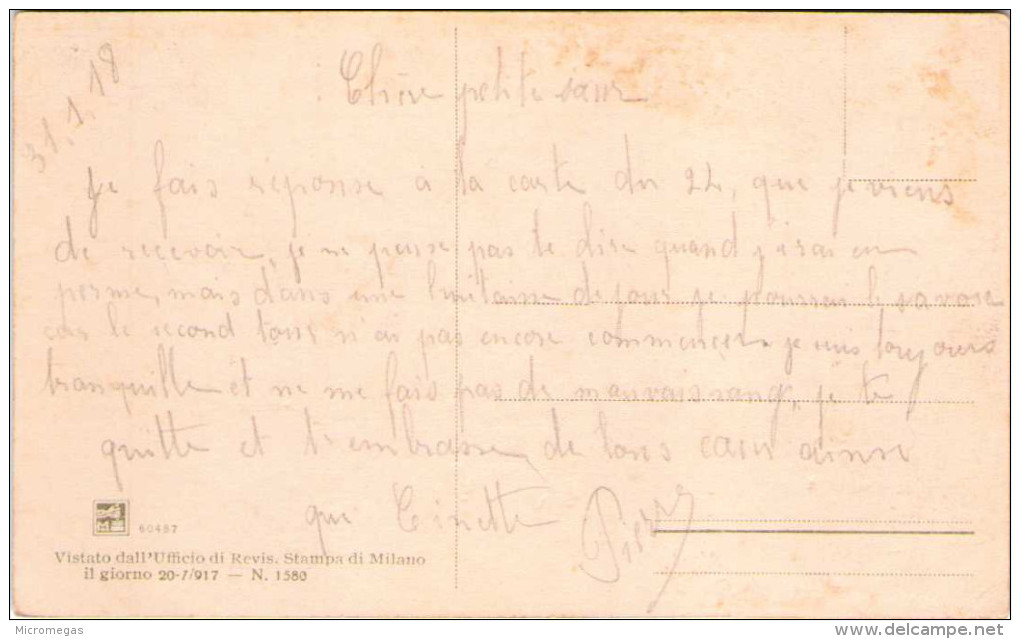 31.1.18
Chère petite sœur
Je fais réponse a la carte du 22, que je viens
de recevoir, je ne pense pas te dire quand j'irai en
perme, mais dans une huitaine de jour je pourrai le savoir
car le second tour n'ai pas encore commencer. je suis toujours
tranquille et ne me fais pas de mauvais sang, je te
quitte et t'embrasse de tous cœur ainsi
que Ginette Pierre
60487
Vistato dall'Ufficio di Revis. Stampa di Milano
il giorno 20-7/917 — N. 1580
Micromegas
delcampe.net